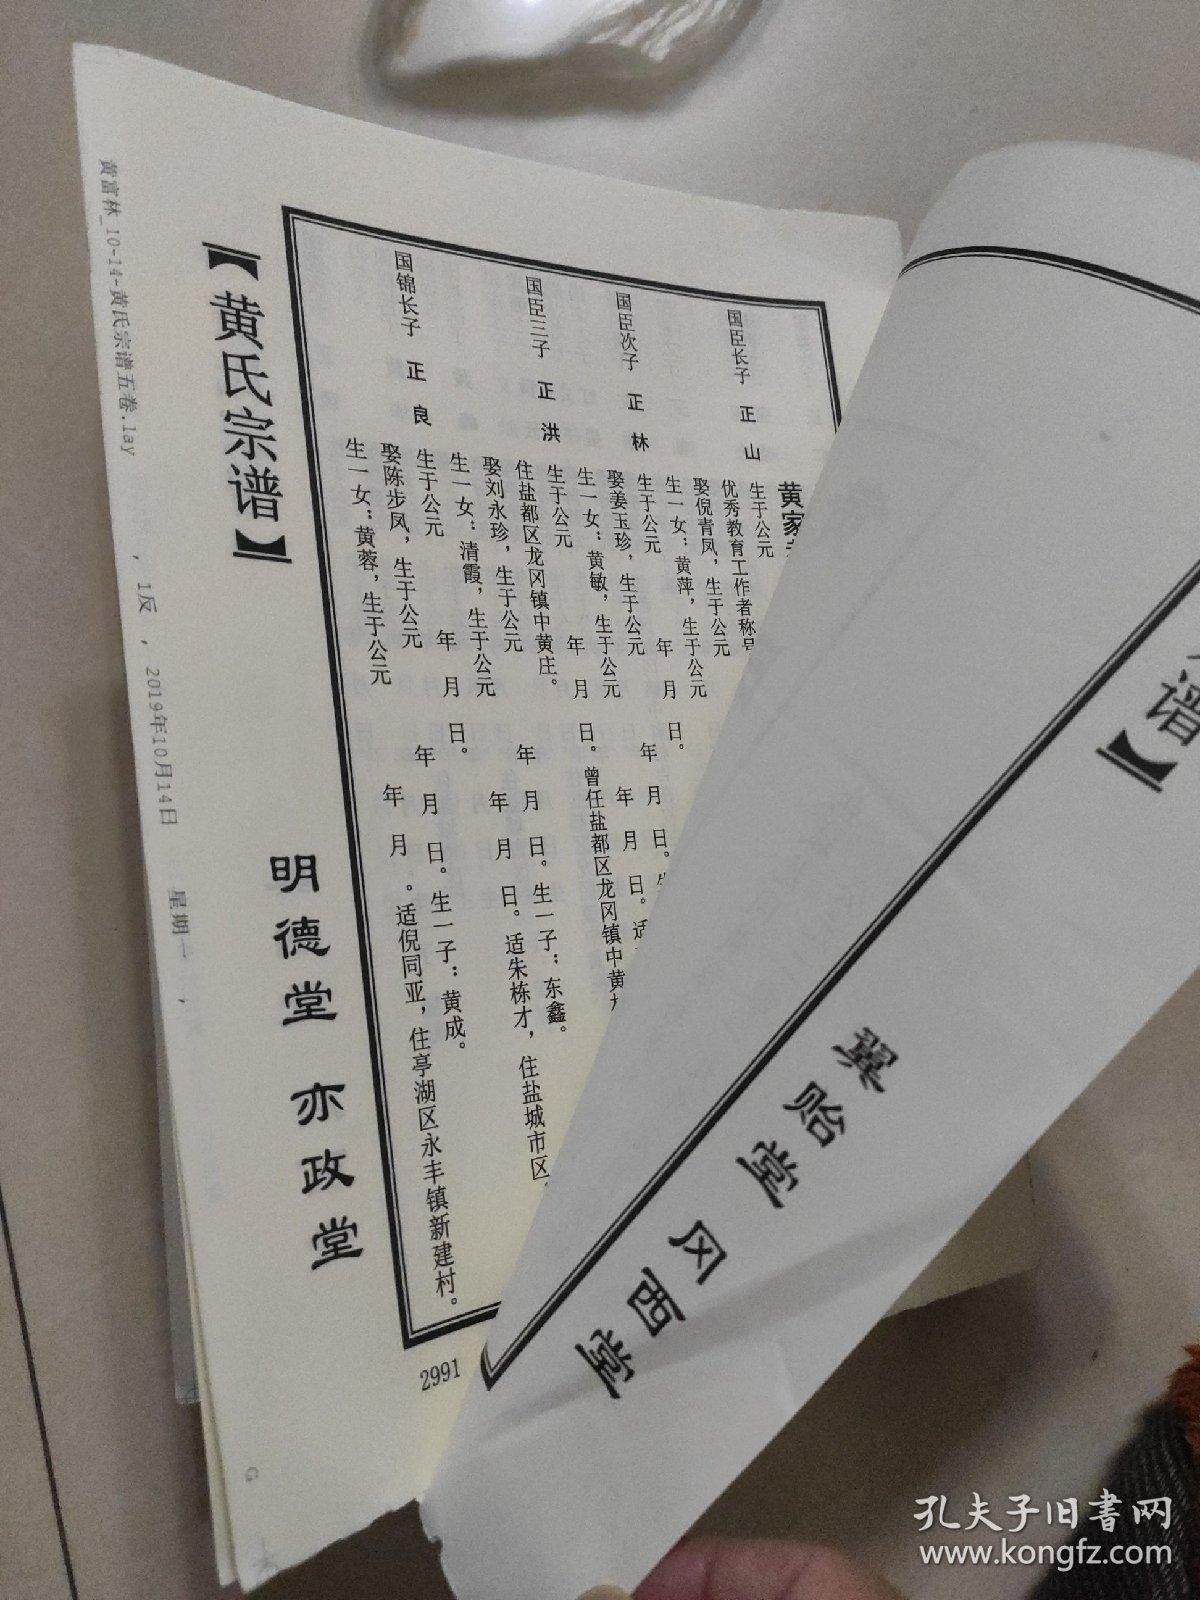 黄家
国臣长子 正山 生于公元 年 月 日。
优秀教育工作者称号
娶倪青凤，生于公元 年 月 日。
生一女：黄萍，生于公元 年 月 日。适
国臣次子 正林 生于公元 年 月 日。曾任盐都区龙冈镇中黄
娶姜玉珍，生于公元
生一女：黄敏，生于公元
国臣三子 正洪 生于公元 年 月 日。生一子：东鑫。
住盐都区龙冈镇中黄庄。
娶刘永珍，生于公元 年 月 日。适朱栋才，住盐城市区
生一女：清霞，生于公元
国锦长子 正良 生于公元 年 月 日。
娶陈步凤，生于公元 年 月 日。生一子：黄成。
生一女：黄蓉，生于公元 年 月 。适倪同亚，住亭湖区永丰镇新建村。
【黄氏宗谱】
明德堂 亦政堂
2991
黄富林_10-14-黄氏宗谱五卷.lay ，1反 ，2019年10月14日 星期一 ，
谱】
翼贻堂 冈西堂
孔夫子旧书网
www.kongfz.com